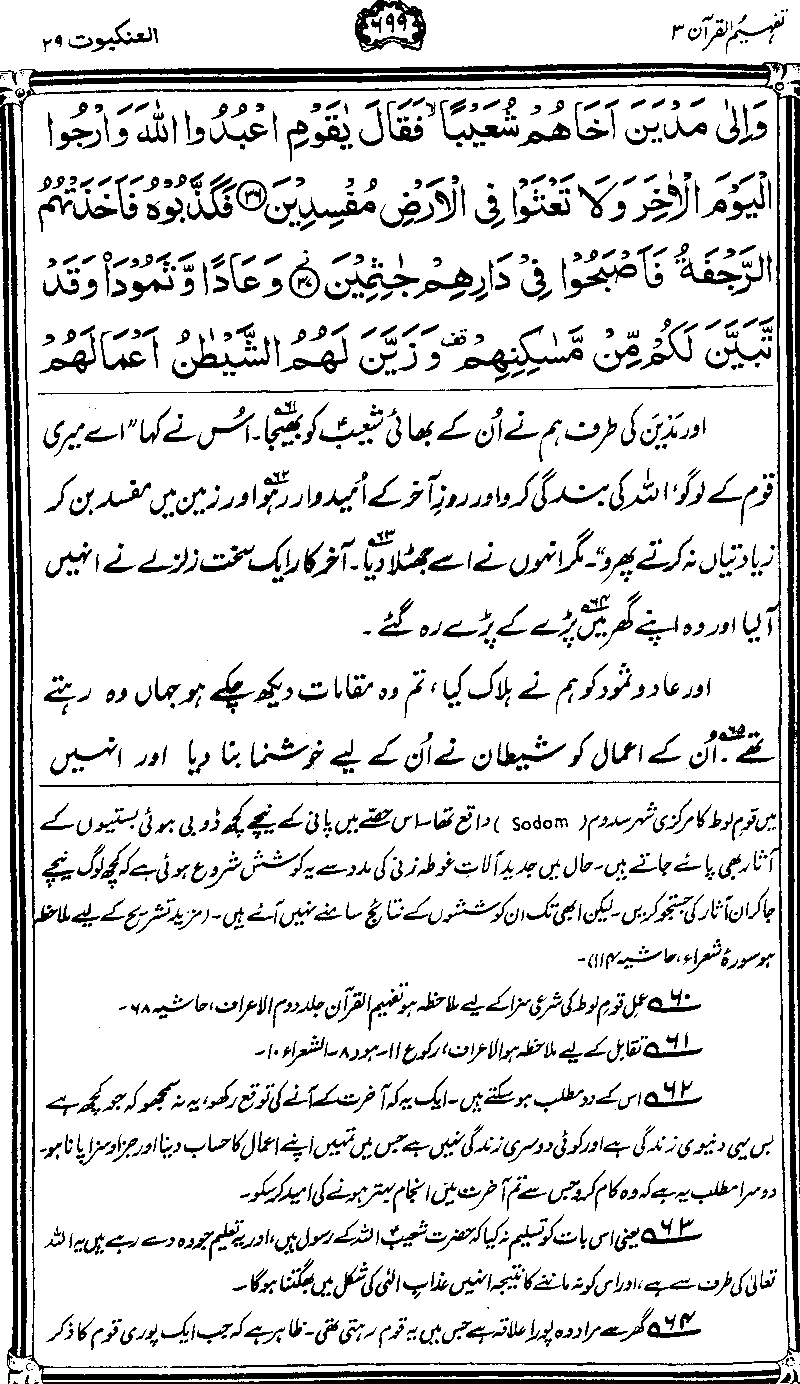 تفہیم القرآن ۳
۶۹۹
العنکبوت ۲۹
وَاِلٰى مَدْيَنَ اَخَاهُمْ شُعَيْبًا ۙ فَقَالَ يٰقَوْمِ اعْبُدُوا اللّٰهَ وَارْجُوا
الْيَوْمَ الْاٰخِرَ وَلَا تَعْثَوْا فِى الْاَرْضِ مُفْسِدِيْنَ ﴿۳۶﴾ فَكَذَّبُوْهُ فَاَخَذَتْهُمُ
الرَّجْفَةُ فَاَصْبَحُوْا فِىْ دَارِهِمْ جٰثِمِيْنَ ﴿۳۷﴾ وَعَادًا وَّثَمُوْدَا۟ وَقَدْ
تَّبَيَّنَ لَكُمْ مِّنْ مَّسٰكِنِهِمْ ۫ وَزَيَّنَ لَهُمُ الشَّيْطٰنُ اَعْمَالَهُمْ
اور مَدْیَن کی طرف ہم نے اُن کے بھائی شعیبؑ کو بھیجا۶۱۔ اُس نے کہا ”اے میری
قوم کے لوگو، اللہ کی بندگی کرو اور روزِ آخر کے اُمیدوار رہو۶۲ اور زمین میں مفسد بن کر
زیادتیاں نہ کرتے پھرو“۔ مگر انہوں نے اسے جھٹلا دیا۶۳۔ آخر کار ایک سخت زلزلے نے انہیں
آلیا اور وہ اپنے گھر میں۶۴ پڑے کے پڑے رہ گئے۔
اور عاد و ثمود کو ہم نے ہلاک کیا، تم وہ مقامات دیکھ چکے ہو جہاں وہ رہتے
تھے۶۵۔ اُن کے اعمال کو شیطان نے اُن کے لیے خوشنما بنا دیا اور انہیں
میں قوم لوط کا مرکزی شہر سدوم (Sodom) واقع تھا۔ اس حصّے میں پانی کے نیچے کچھ ڈوبی ہوئی بستیوں کے
آثار بھی پائے جاتے ہیں۔ حال میں جدید آلات غوطہ زنی کی مدد سے یہ کوشش شروع ہوئی ہے کہ کچھ لوگ نیچے
جا کر ان آثار کی جستجو کریں۔ لیکن ابھی تک ان کوششوں کے نتائج سامنے نہیں آئے ہیں۔ (مزید تشریح کے لیے ملاحظہ
ہو سورۂ شعراء، حاشیہ ۱۱۴)۔
۶۰ عمل قوم لوط کی شرعی سزا کے لیے ملاحظہ ہو تفہیم القرآن جلد دوم الاعراف، حاشیہ ۶۸۔
۶۱ تقابل کے لیے ملاحظہ ہو الاعراف، رکوع ۱۱۔ ہود ۸۔ الشعراء ۱۰۔
۶۲ اس کے دو مطلب ہو سکتے ہیں۔ ایک یہ کہ آخرت کے آنے کی توقع رکھو، یہ نہ سمجھو کہ جو کچھ ہے
بس یہی دنیوی زندگی ہے اور کوئی دوسری زندگی نہیں ہے جس میں تمہیں اپنے اعمال کا حساب دینا اور جزا و سزا پانا ہو۔
دوسرا مطلب یہ ہے کہ وہ کام کرو جس سے تم آخرت میں انجام بہتر ہونے کی امید کر سکو۔
۶۳ یعنی اس بات کو تسلیم نہ کیا کہ حضرت شعیبؑ اللہ کے رسول ہیں، اور یہ تعلیم جو وہ دے رہے ہیں یہ اللہ
تعالیٰ کی طرف سے ہے، اور اس کو نہ ماننے کا نتیجہ انہیں عذاب الٰہی کی شکل میں بھگتنا ہوگا۔
۶۴ گھر سے مراد وہ پورا علاقہ ہے جس میں یہ قوم رہتی تھی۔ ظاہر ہے کہ جب ایک پوری قوم کا ذکر